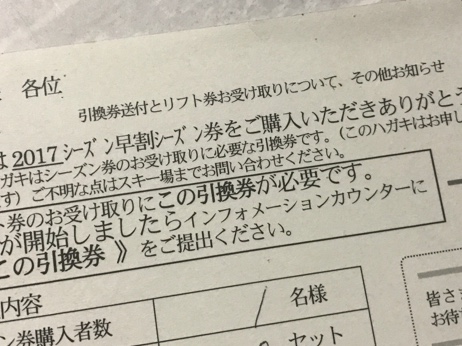 各位
引換券送付とリフト券お受け取りについて、その他お知らせ
は2017シーズン早割シーズン券をご購入いただきありがとう
ハガキはシーズン券のお受け取りに必要な引換券です。(このハガキはお申し
す) ご不明な点はスキー場までお問い合わせください。
ト券のお受け取りにこの引換券が必要です。
が開始しましたらインフォメーションカウンターに
この引換券 》をご提出ください。
内容
名様
ン券購入者数
セット
皆さま
お待ち